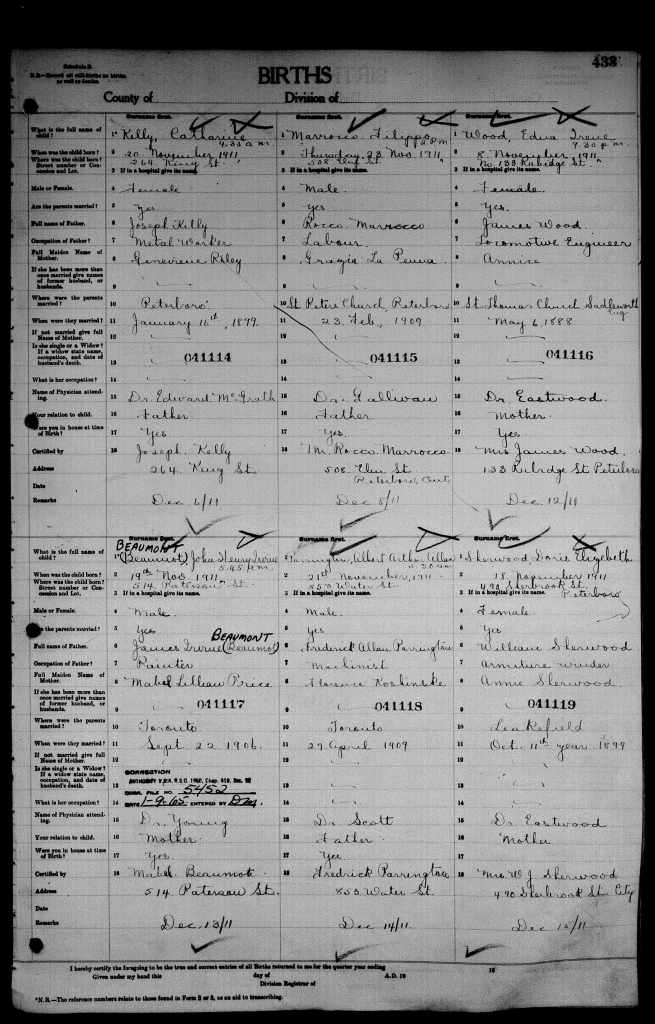 Schedule B.
N.B.—Record all still-births as births, as well as deaths.
433
BIRTHS
County of
Division of
Surname first.
Surname first.
Surname first.
What is the full name of child?
1 Kelly, Catharine
1 Marrocco, Filippo
1 Wood, Edna Irene
4.30 a.m.
9.30 p.m.
When was the child born?
2 20 November 1911
2 Thursday 23 Nov. 1911
2 8 November 1911
Where was the child born? Street number or Concession and Lot.
264 King St.
508 Elm St
No 133 Rubidge St.
3 If in a hospital give its name.
3 If in a hospital give its name.
3 If in a hospital give its name.
Male or Female.
4 Female
4 Male
4 Female
Are the parents married?
5 Yes
5 Yes
5 Yes.
Full name of Father.
6 Joseph Kelly
6 Rocco Marrocco
6 James Wood
Occupation of Father?
7 Metal Worker
7 Labour
7 Locomotive Engineer
Full Maiden Name of Mother.
8 Genevieve Riley
8 Grazia La Penna
8 Annice
If she has been more than once married give names of former husband, or husbands.
9
9
9
Where were the parents married?
10 Peterboro
10 St Peters Church, Peterboro
10 St. Thomas Church Saddleworth Eng
When were they married?
11 January 16th, 1899
11 23 Feb, 1909
11 May 6, 1888
If not married give full Name of Mother.
12
12
12
Is she single or a Widow? If a widow state name, occupation, and date of husband's death.
13 041114
13 041115
13 041116
What is her occupation?
14
14
14
Name of Physician attending.
15 Dr. Edward McGrath
15 Dr. Gallivan
15 Dr. Eastwood
Your relation to child.
16 Father
16 Father
16 Mother
Were you in house at time of Birth?
17 Yes
17 Yes
17 Yes
Certified by
18 Joseph Kelly
18 Mr. Rocco Marrocco
18 Mrs James Wood
Address
264 King St.
508 Elm St
133 Rubidge St Peterboro
Peterboro, Ont
Date
Remarks
Dec 6/11
Dec 8/11
Dec 12/11
Surname first.
Surname first.
Surname first.
BEAUMONT
What is the full name of child?
1 (Beaumont) John Henry Irvine
1 Parrington, Albert Arthur Allan
1 Sherwood, Doris Elizabeth
5.45 a.m.
When was the child born?
2 19th Nov. 1911
2 21st November, 1911
2 18 November 1911
Where was the child born? Street number or Concession and Lot.
514 Paterson St.
853 Water St
490 Sherbrook St.
3 If in a hospital give its name.
3 If in a hospital give its name.
3 If in a hospital give its name.
Peterboro
Male or Female.
4 Male
4 Male
4 Female
Are the parents married?
5 Yes
5 Yes
5 Yes
BEAUMONT
Full name of Father.
6 James Irvine (Beaumont)
6 Frederick Allan Parrington
6 William Sherwood
Occupation of Father?
7 Painter
7 Machinist
7 Armiture winder
Full Maiden Name of Mother.
8 Mabel Lillian Price
8 Florence Koshinske
8 Annie Sherwood
If she has been more than once married give names of former husband, or husbands.
9 041117
9 041118
9 041119
Where were the parents married?
10 Toronto
10 Toronto
10 Leakefield
When were they married?
11 Sept 22 1906
11 29 April 1909
11 Oct. 11th year 1899
If not married give full Name of Mother.
12
12
12
Is she single or a Widow? If a widow state name, occupation, and date of husband's death.
CORRECTION
AUTHORITY V.S.A. R.S.O. 1960, Chap. 419, Sec. 22
SERIAL FILE NO. 5452
What is her occupation?
DATE 1-9-65 ENTERED BY
14
14
Name of Physician attending.
15 Dr. Young
15 Dr Scott
15 Dr. Eastwood
Your relation to child.
16 Mother
16 Father
16 Mother
Were you in house at time of Birth?
17 Yes
17 Yes
Certified by
18 Mabel Beaumont
18 Fredrick Parrington
18 Mrs W J Sherwood
Address
514 Paterson St.
853 Water St.
490 Sherbrook St City
Date
Remarks
Dec 13/11
Dec 14/11
Dec 15/11
I hereby certify the foregoing to be the true and correct entries of all Births returned to me for the quarter year ending 19
Given under my hand this day of A.D. 19
Division Registrar of
*N.B.—The reference numbers relate to those found in Form 2 or 3, as an aid to transcribing.